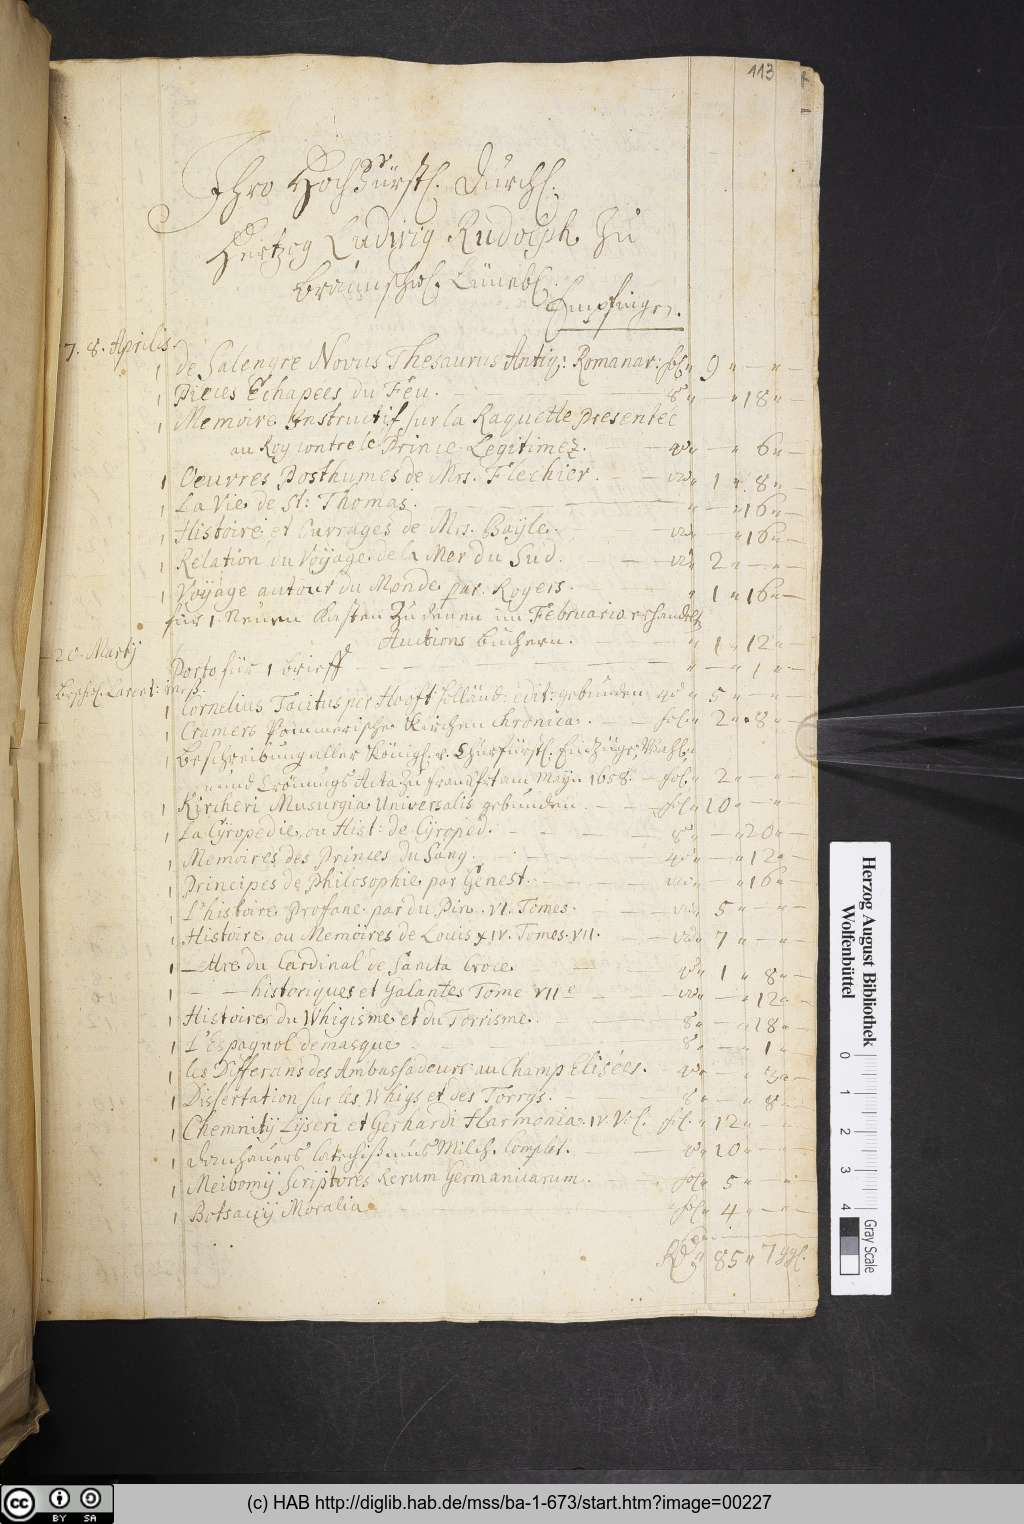 113
Ihro Hochfürstl. Durchl.
Hertzog Ludwig Rudolph zu
Braunschw. Lüneb.
Empfinge.
8. Aprilis.
1 de Salengre Novus Thesaurus Antiq: Romanar: fol. 9 " — " —
1 Pieces Echapées du Feu. 8° " — " 18 " —
1 Memoire Instructif sur la Raquette presentée
au Roy contre le Prince Legitimez. 4° " — " 6 " —
1 Oeuvres Posthumes de Mrs. Flechier. 1 " 8 " —
1 La Vie de St: Thomas. — " 16 " —
1 Histoire et Ouvrages de Mrs. Bayle. — " 16 " —
1 Relation du Voÿage de la Mer du Sud. 2 " — " —
1 Voÿage autour du Monde par Rogers. 1 " 16 " —
für 1. Neuen Kasten zu denen im Februario erhandelt
Auctions büchern. 1 " 12 " —
20. Martij
Porto für 1 brieff — " 1 " —
1 Cornelius Tacitus per Hooft holländ: edit: gebunden 5 " — " —
1 Cramers Pommerische Kirchen Chronica. fol. 2 " 8 " —
1 Beschreibung aller Königl. v. Churfürstl. Einzüge, Wahl
und Crönungs Acta zu Franckfrt am Mayn 1658. fol. 2 " — " —
1 Kircheri Musurgia Universalis gebunden. fol. 10 " — " —
1 La Cÿropedie, ou Hist: de Cÿroped. 8° — " 20 " —
1 Memoires des Princes du Sang. — " 12 " —
1 Principes de Philosophie par Genest. — " 16 " —
1 L'histoire Profane par du Pin. VI. Tomes. 5 " — " —
1 Histoire, ou Memoires de Louis XIV. Tomes. VII. 7 " — " —
1 — ttre du Cardinal de Sancta Croce. 1 " 8 " —
1 — — historiques et Galantes Tome VIIe — " 12 " —
1 Histoire du Whigisme et du Torrisme. 8 " — " 18 " —
1 L'Espagnol demasque. 8 " — " 1 "
1 les Differans des Ambassadeurs au Champ Elisées. — " 3 " —
1 Dissertation sur les Whigs et des Torrys. — " 8 " —
1 Chemnitij Lÿseri et Gerhardi Harmonia. IV V. fol. 12 " — " —
1 Danhauers Catechismus Milch. Complet. 10 " — " —
1 Meibomij Scriptores Rerum Germanicarum. fol. 5 " — " —
1 Botsacij Moralia. fol. 4 " — " —
85 " 7 ggl.
Herzog August Bibliothek
Wolfenbüttel
0 1 2 3 4
Gray Scale
cc BY SA
(c) HAB http://diglib.hab.de/mss/ba-1-673/start.htm?image=00227